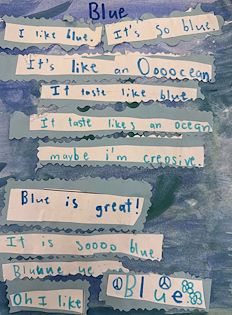 Blue
I like blue. It's so blue.
It's like an Ooooocean.
It taste like blue.
It taste likes an ocean
maybe i'm creasive.
Blue is great!
It is soooo blue
Bluuue ue
Oh I like Blue